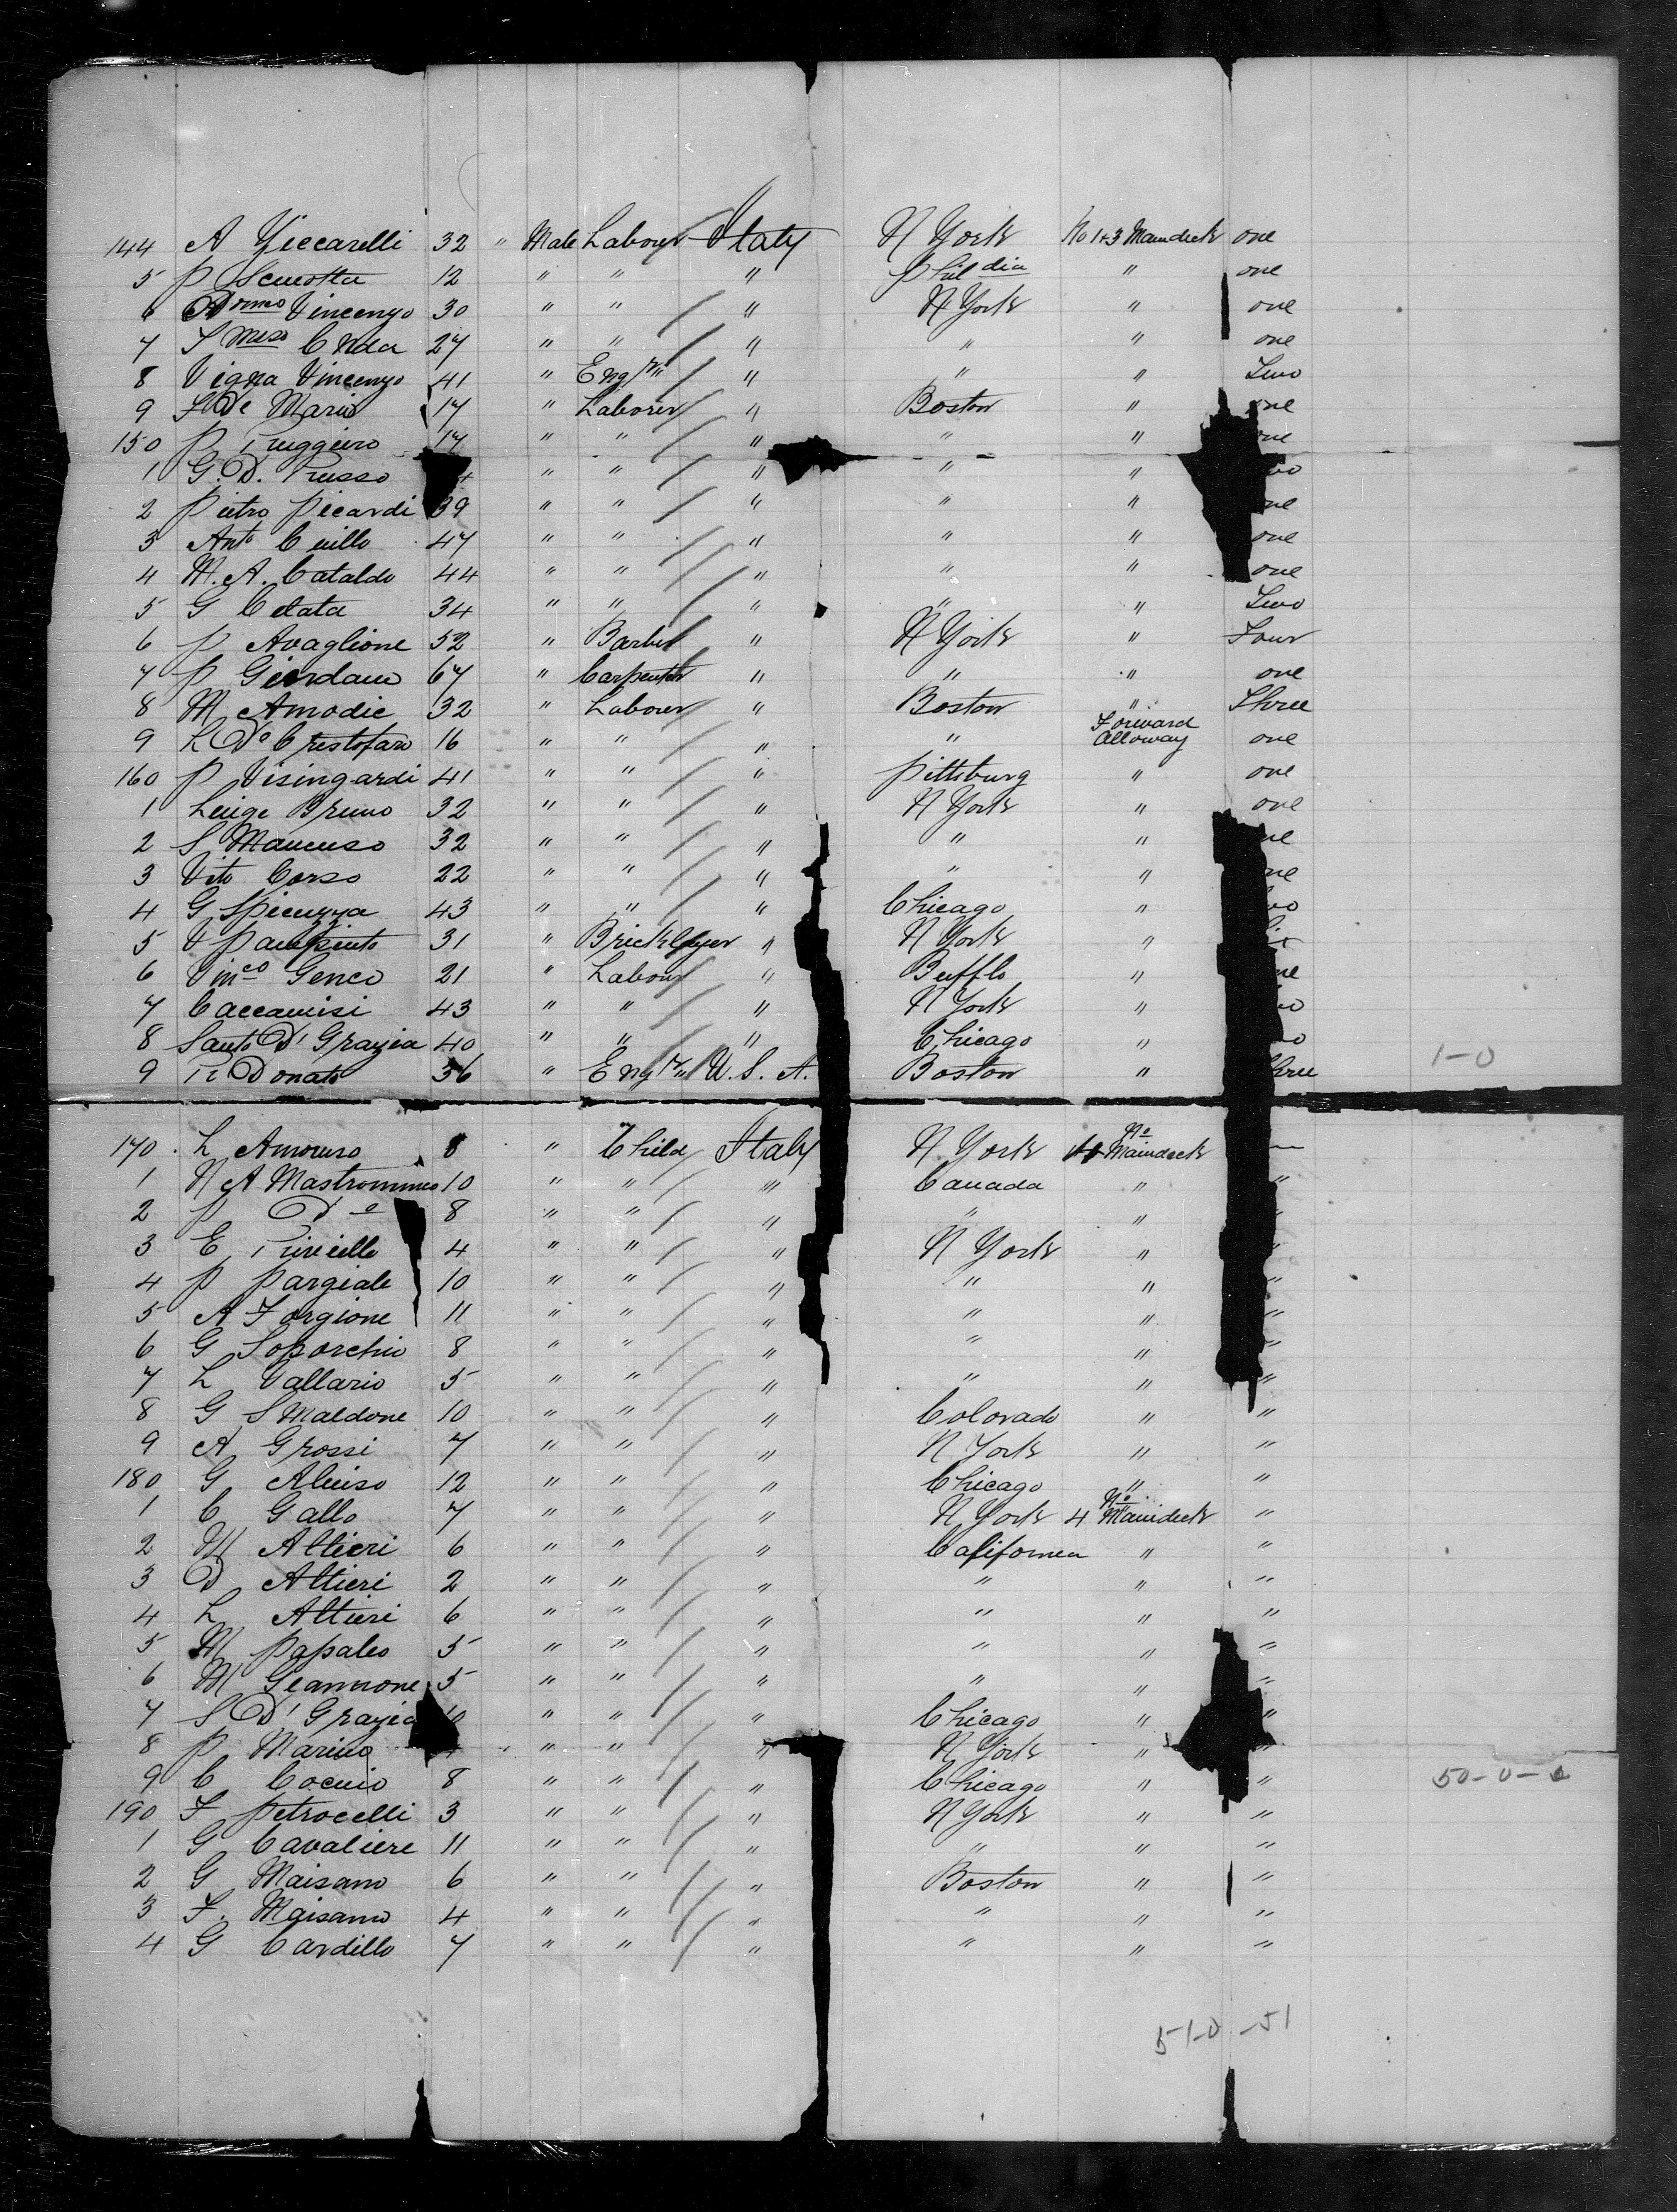 144 A Ziccarelli 32 " Male Labourer Italy N York No 1+3 Maindeck one
5 P Scuotta 12 " " " Phil dia " one
6 Dom̅o̅ Vincenzo 30 " " " N York " one
7 27 " " " " " one
8 Vigna Vincenzo 41 " Eng " " " Two
9 F De Mario 17 " Labourer " Boston " one
150 P Ruggiero 17 " " " " "
1 G. D. Russo " " " " "
2 Pietro Picardi 39 " " " " "
3 Anto Cuillo 47 " " " " " one
4 M. A. Cataldo 44 " " " " " one
5 G Cetata 34 " " " " " Two
6 P Avaglione 52 " Barber " N York " Four
7 P Giordano 67 " Carpenter " " " one
8 M Amodie 32 " Labourer " Boston " Three
9 L Do Cristofaro 16 " " " " Forward Alloway one
160 P Visingardi 41 " " " Pittsburg " one
1 Luige Bruno 32 " " " N York " one
2 S Mancuso 32 " " " " "
3 Vito Corso 22 " " " " "
4 G Spicuzza 43 " " " Chicago "
5 V Pampinto 31 " Bricklayer " N York "
6 Vinco Genco 21 " Labour " Bufflo "
7 Caccamisi 43 " " " N York "
8 Santo D' Grazia 40 " " " Chicago "
9 R Donato 36 " Eng U. S. A. Boston " Three 1-0
170 L Amoruso 8 " Child Italy N York No 4 Maindeck
1 N A Mastrommeo 10 " " " Canada " "
2 P Do 8 " " " " " "
3 E Piricello 4 " " " N York " "
4 P Pargiale 10 " " " " " "
5 A Forgione 11 " " " " " "
6 G Soporchio 8 " " " " " "
7 L Vallario 5 " " " " " "
8 G Smaldone 10 " " " Colorado " "
9 A Grossi 7 " " " N York " "
180 G Aluiso 12 " " " Chicago " "
1 C Gallo 7 " " " N York No 4 Maindeck "
2 M Altieri 6 " " " California " "
3 D Altieri 2 " " " " " "
4 L Altieri 6 " " " " " "
5 M Papaleo 5 " " " " " "
6 M Giannone 5 " " " " " "
7 S D' Grazia 10 " " " Chicago " "
8 P Marino " " " N York " "
9 C Cocuio 8 " " " Chicago " " 50-0-0
190 F Petrocelli 3 " " " N York " "
1 G Cavaliere 11 " " " " " "
2 G Maisano 6 " " " Boston " "
3 F. Maisano 4 " " " " " "
4 G Cardillo 7 " " " " " "
51-0-51